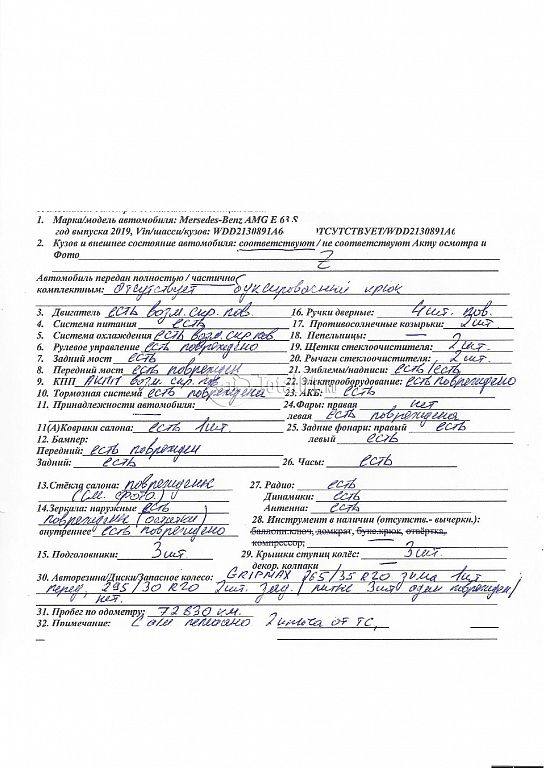 1. Марка/модель автомобиля: Mersedes-Benz AMG E 63 S
год выпуска 2019, Vin/шасси/кузов: WDD2130891A6 ОТСУТСТВУЕТ/WDD2130891A6
2. Кузов и внешнее состояние автомобиля: соответствуют / не соответствуют Акту осмотра и
Фото
Автомобиль передан полностью / частично
комплектным: отсутствует буксировочный крюк
3. Двигатель есть возм. скр. пов. 16. Ручки дверные: 4 шт. пов.
4. Система питания есть 17. Противосолнечные козырьки: 2 шт
5. Система охлаждения есть возм. скр пов. 18. Пепельницы: —
6. Рулевое управление есть повреждено 19. Щетки стеклоочистителя: 2 шт.
7. Задний мост есть 20. Рычаги стеклоочистителя: 2 шт.
8. Передний мост есть поврежден 21. Эмблемы/надписи: есть/есть
9. КПП АКПП возм. скр. пов 22. Электрооборудование: есть повреждено
10. Тормозная система есть повреждена 23. АКБ: есть
11. Принадлежности автомобиля: 24. Фары: правая нет
левая есть повреждена
11(А)Коврики салона: есть 1 шт 25. Задние фонари: правый есть
12. Бампер: левый есть
Передний: есть поврежден
Задний: есть 26. Часы: есть
13. Стёкла салона: повреждены 27. Радио: есть
(см. фото.) Динамики: есть
14. Зеркала: наружные есть Антенна: есть
повреждены (остатки) 28. Инструмент в наличии (отсутств.- вычеркн.):
внутреннее есть повреждено баллонн.ключ, домкрат, букс.крюк, отвёртка,
компрессор,
15. Подголовники: 3 шт 29. Крышки ступиц колёс: 3 шт.
декор. колпаки
30. Авторезина/Диски/Запасное колесо: GRIPMAX 265/35 R20 зима 1 шт
перед, 295/30 R20 2 шт. зад. / литые 3 шт один поврежден/
нет.
31. Пробег по одометру: 72830 км.
32. Примечание: 2 ключа от ТС,